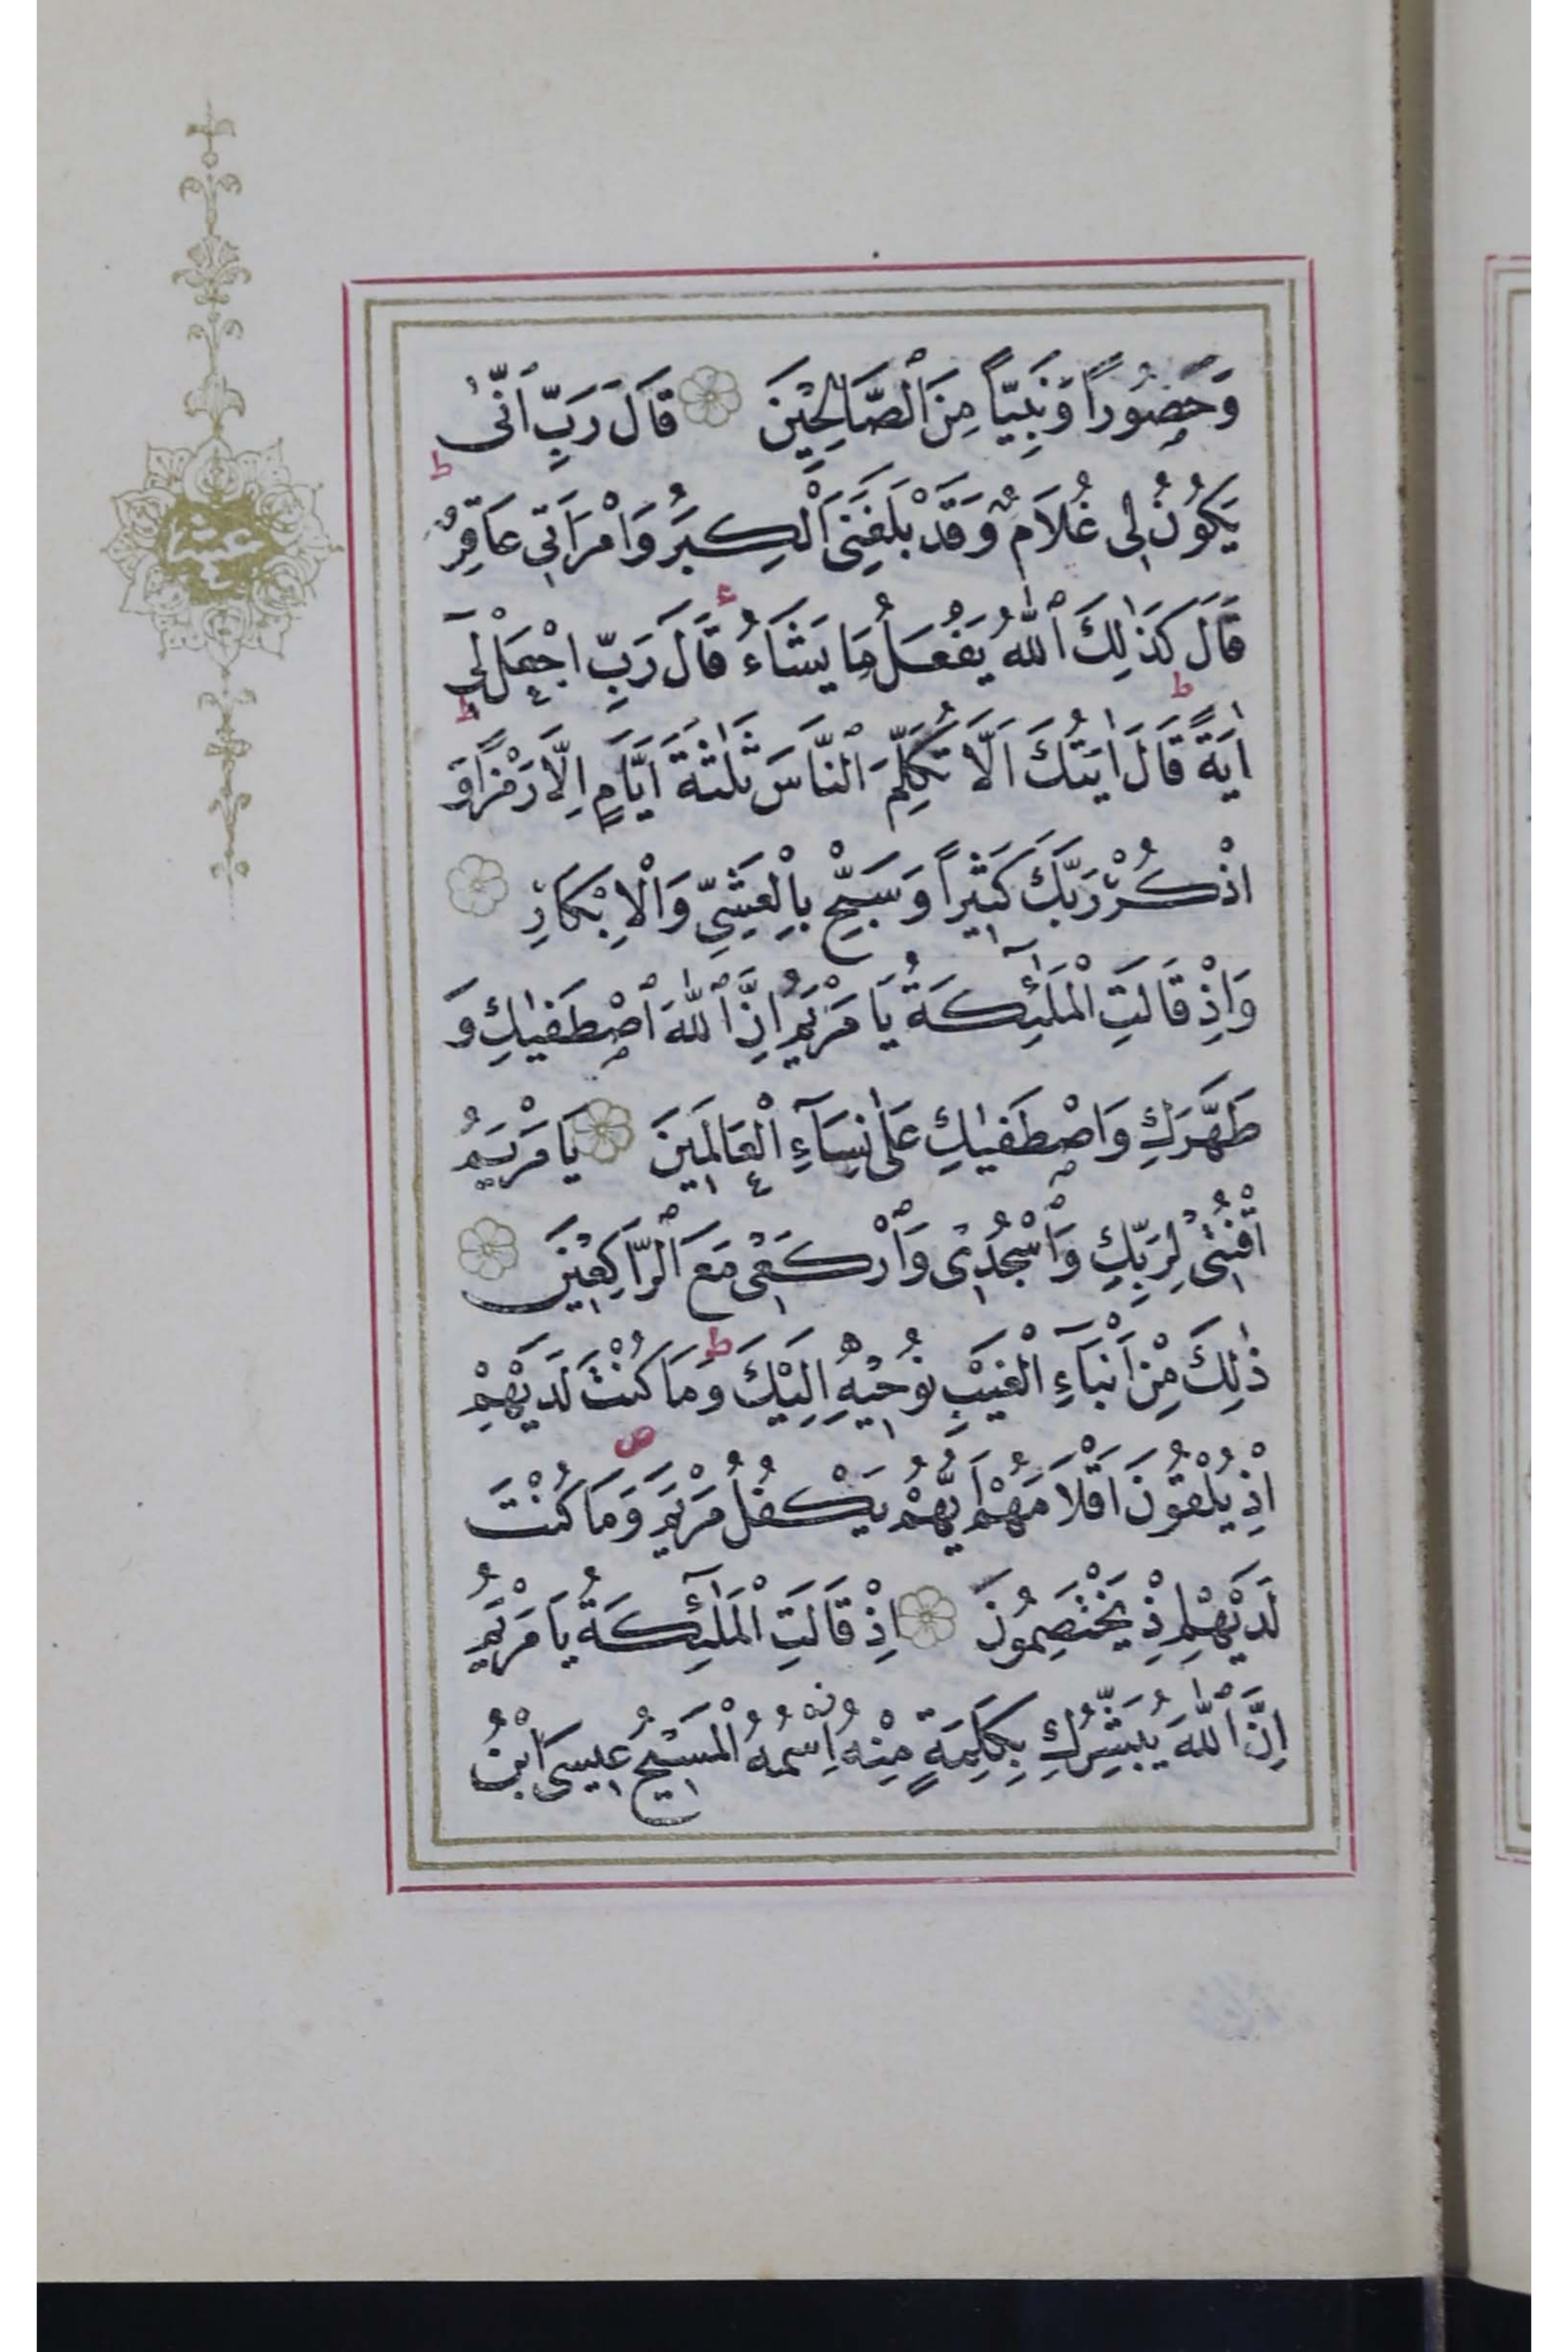 وَحَصُوراً وَنَبِيّاً مِنَ ٱلصَّالِحِينَ قَالَ رَبِّ اَنّٰى
يَكُونُ لِى غُلَامٌ وَقَدْ بَلَغَنِىَ ٱلْكِبَرُ وَامْرَاَتِى عَاقِرٌ ط
قَالَ كَذٰلِكَ ٱللّٰهُ يَفْعَلُ مَا يَشَاءُ قَالَ رَبِّ اجْعَلْ لِى
اٰيَةً ط قَالَ اٰيَتُكَ اَلَّا تُكَلِّمَ ٱلنَّاسَ ثَلٰثَةَ اَيَّامٍ اِلَّا رَمْزاً ط وَ
اذْكُرْ رَبَّكَ كَثِيراً وَسَبِّحْ بِالْعَشِىِّ وَالْاِبْكَارِ
وَاِذْ قَالَتِ الْمَلٰٓئِكَةُ يَا مَرْيَمُ اِنَّ ٱللّٰهَ ٱصْطَفٰيكِ وَ
طَهَّرَكِ وَاصْطَفٰيكِ عَلٰى نِسَآءِ الْعَالَمِينَ يَا مَرْيَمُ
اقْنُتِى لِرَبِّكِ وَٱسْجُدِى وَٱرْكَعِى مَعَ ٱلرَّاكِعِينَ
ذٰلِكَ مِنْ اَنْبَآءِ الْغَيْبِ نُوحِيهِ اِلَيْكَ ط وَمَا كُنْتَ لَدَيْهِمْ
اِذْ يُلْقُونَ اَقْلَامَهُمْ اَيُّهُمْ يَكْفُلُ مَرْيَمَ ص وَمَا كُنْتَ
لَدَيْهِمْ اِذْ يَخْتَصِمُونَ اِذْ قَالَتِ الْمَلٰٓئِكَةُ يَا مَرْيَمُ
اِنَّ ٱللّٰهَ يُبَشِّرُكِ بِكَلِمَةٍ مِنْهُ اِسْمُهُ الْمَسِيحُ عِيسَى ابْنُ